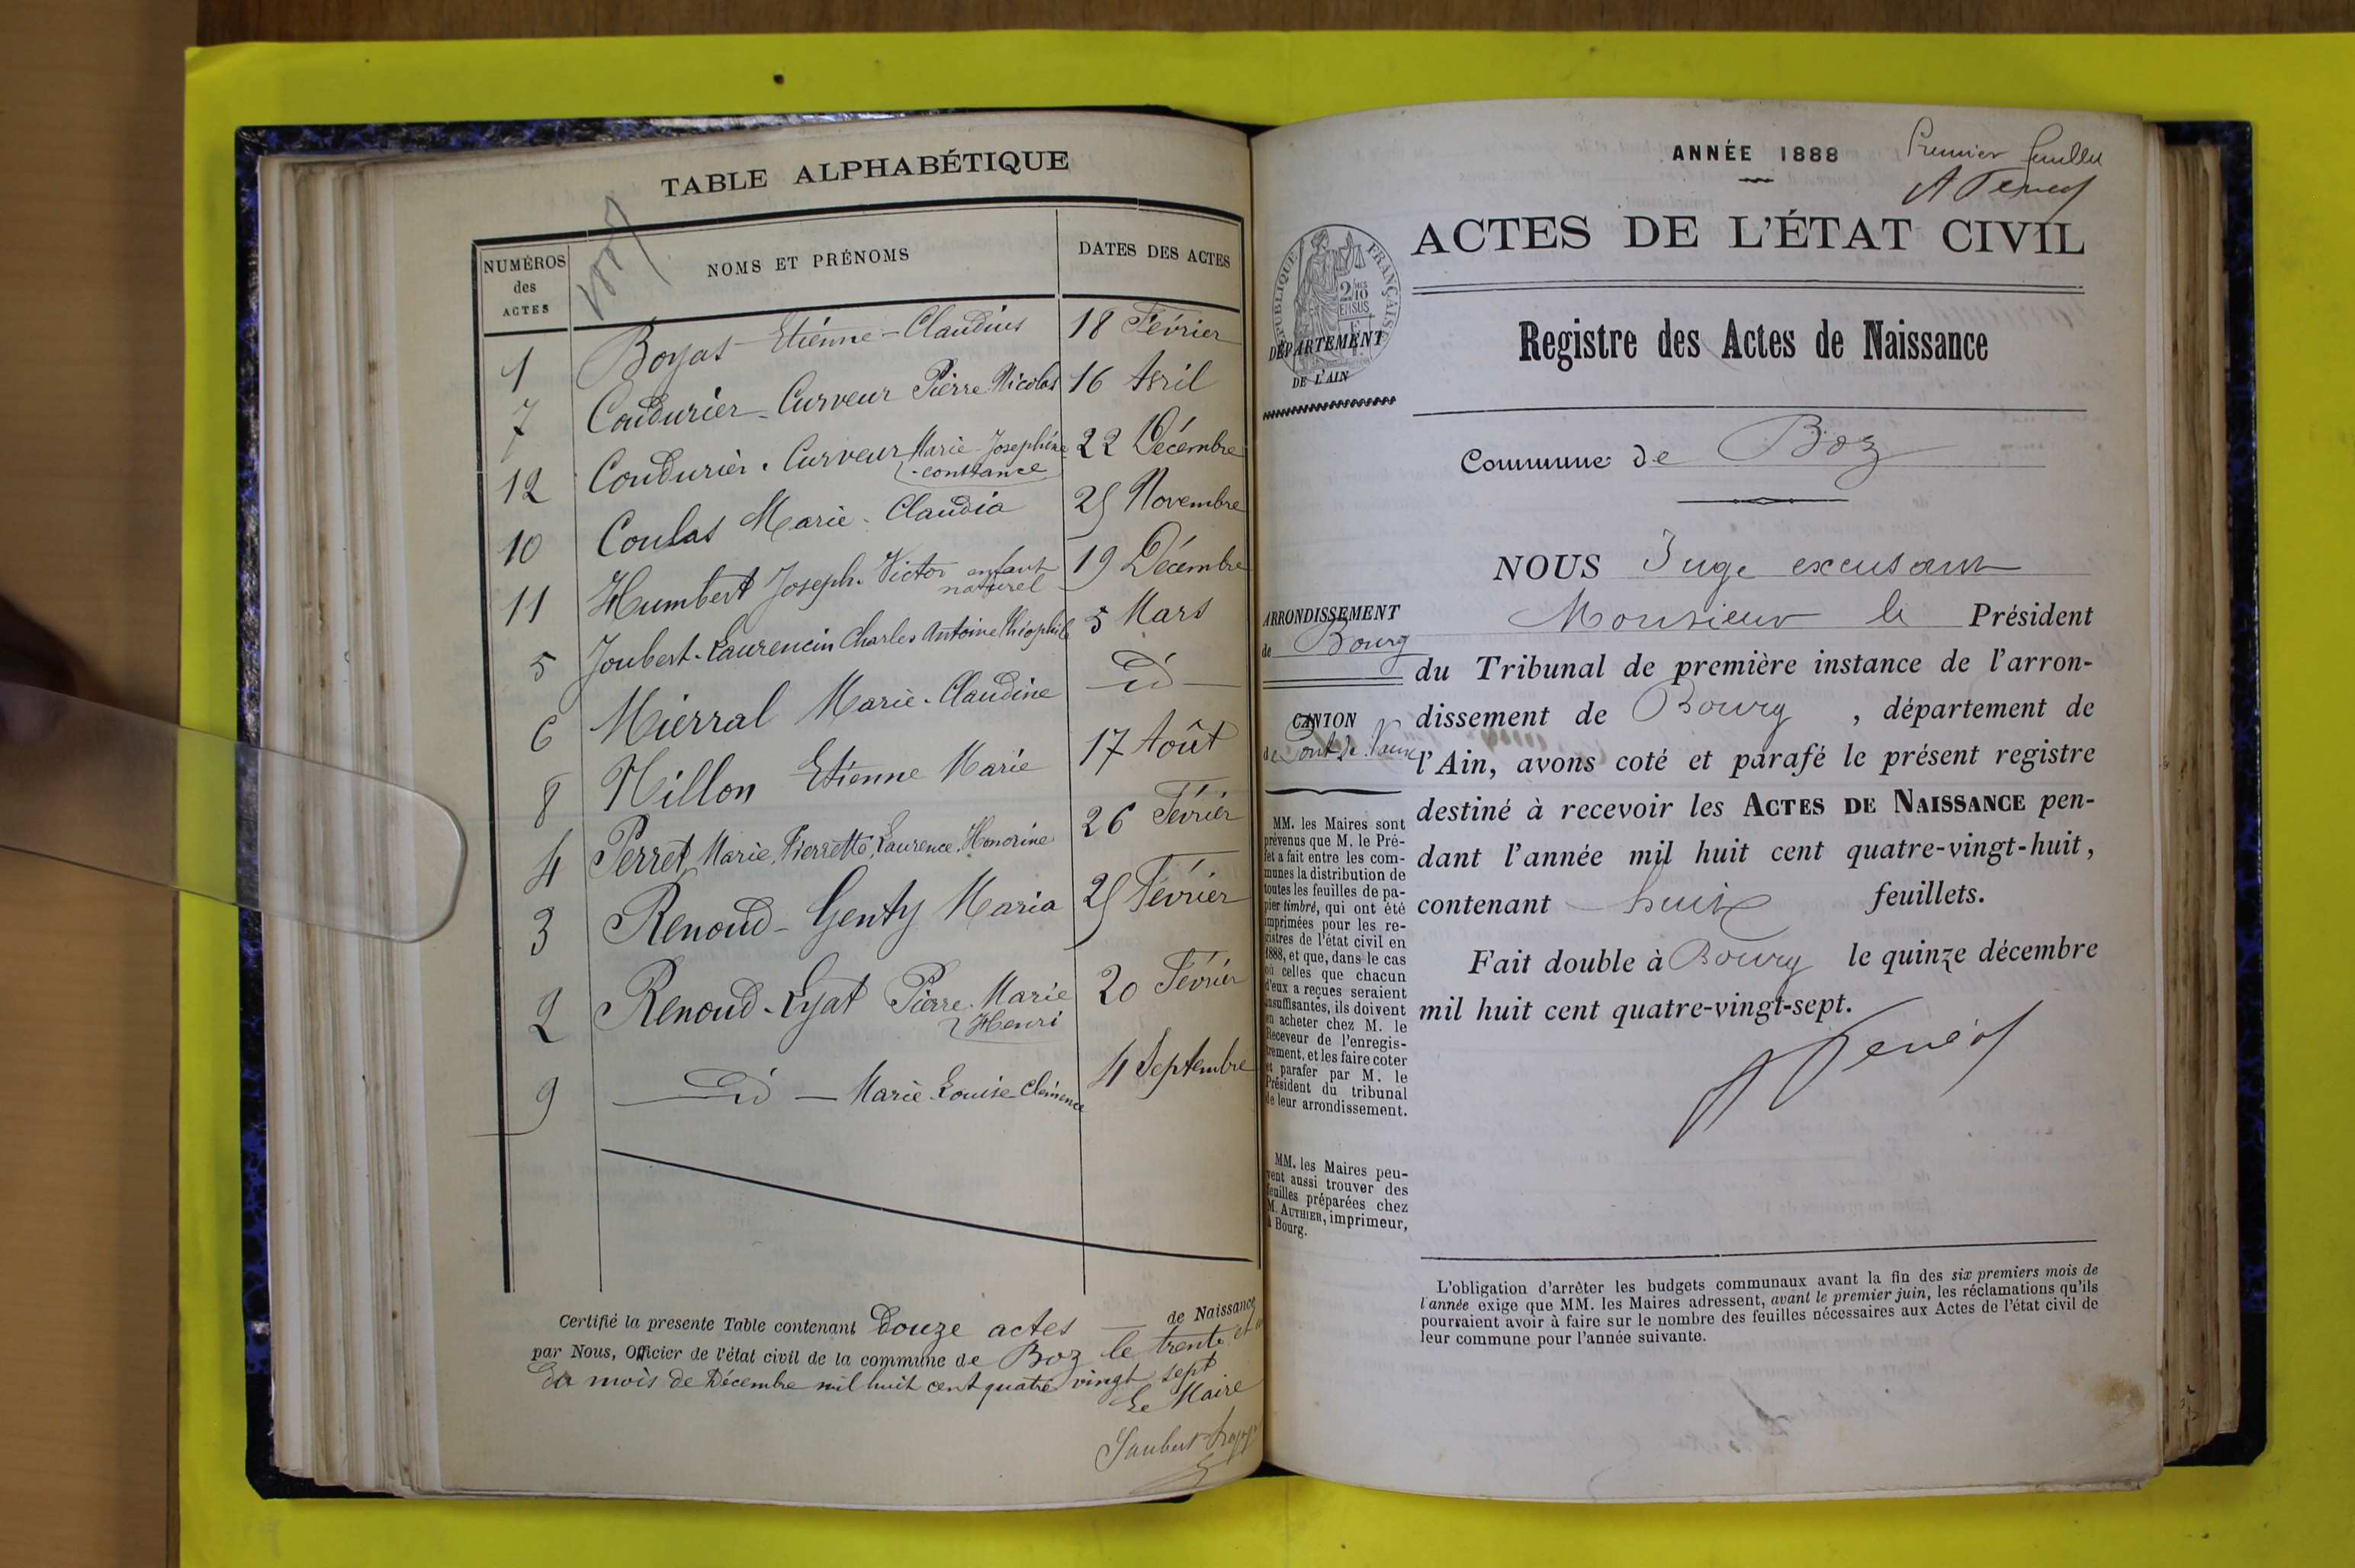 TABLE ALPHABÉTIQUE
1887
NUMÉROS des ACTES
NOMS ET PRÉNOMS
DATES DES ACTES
1 Boyat Etienne-Claudius 18 Février
7 Coudurier-Curveur Pierre Nicolas 16 Avril
12 Coudurier-Curveur Marie-Joséphine 22 Décembre
-constance
10 Coulas Marie-Claudia 25 Novembre
11 Humbert Joseph-Victor enfant 19 Décembre
naturel
5 Joubert-Laurencin Charles Antoine Théophile 5 Mars
6 Mierral Marie-Claudine — id —
8 Millon Etienne Marie 17 Août
4 Perret Marie, Pierrette, Laurence, Honorine 26 Février
3 Renoud-Genty Maria 25 Février
2 Renoud-Lyat Pierre-Marie 20 Février
Henri
9 — id — Marie Louise Clémence 4 Septembre
Certifié la presente Table contenant douze actes — de Naissance
par Nous, Officier de l'état civil de la commune de Boz le trente et
du mois de Décembre mil huit cent quatre vingt sept
Le Maire
ANNÉE 1888
Premier feuillet
ACTES DE L'ÉTAT CIVIL
RÉPUBLIQUE FRANÇAISE
2 10
EN SUS
DÉPARTEMENT
DE L'AIN
Registre des Actes de Naissance
Commune de Boz
NOUS Juge excusant
Monsieur le Président
du Tribunal de première instance de l'arron-
dissement de Bourg, département de
l'Ain, avons coté et parafé le présent registre
destiné à recevoir les ACTES DE NAISSANCE pen-
dant l'année mil huit cent quatre-vingt-huit,
contenant huit feuillets.
Fait double à Bourg le quinze décembre
mil huit cent quatre-vingt-sept.
ARRONDISSEMENT
de Bourg
CANTON
de Pont de Vaux
MM. les Maires sont
prévenus que M. le Pré-
fet a fait entre les com-
munes la distribution de
toutes les feuilles de pa-
pier timbré, qui ont été
imprimées pour les re-
gistres de l'état civil en
1888, et que, dans le cas
où celles que chacun
d'eux a reçues seraient
insuffisantes, ils doivent
en acheter chez M. le
Receveur de l'enregis-
trement, et les faire coter
et parafer par M. le
Président du tribunal
de leur arrondissement.
MM. les Maires peu-
vent aussi trouver des
feuilles préparées chez
M. AUTHIER, imprimeur,
à Bourg.
L'obligation d'arrêter les budgets communaux avant la fin des six premiers mois de
l'année exige que MM. les Maires adressent, avant le premier juin, les réclamations qu'ils
pourraient avoir à faire sur le nombre des feuilles nécessaires aux Actes de l'état civil de
leur commune pour l'année suivante.